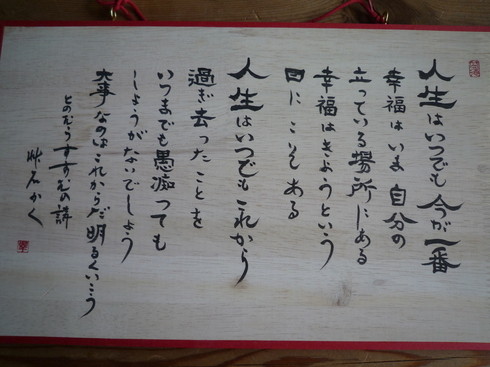 人生はいつでも今が一番
幸福はいま自分の
立っている場所にある
幸福はきょうという
日にこそある
人生はいつでもこれから
過ぎ去ったことを
いつまでも愚痴っても
しょうがないでしょう
大事なのはこれからだ明るくいこう
とのむらすすむの詩
かく